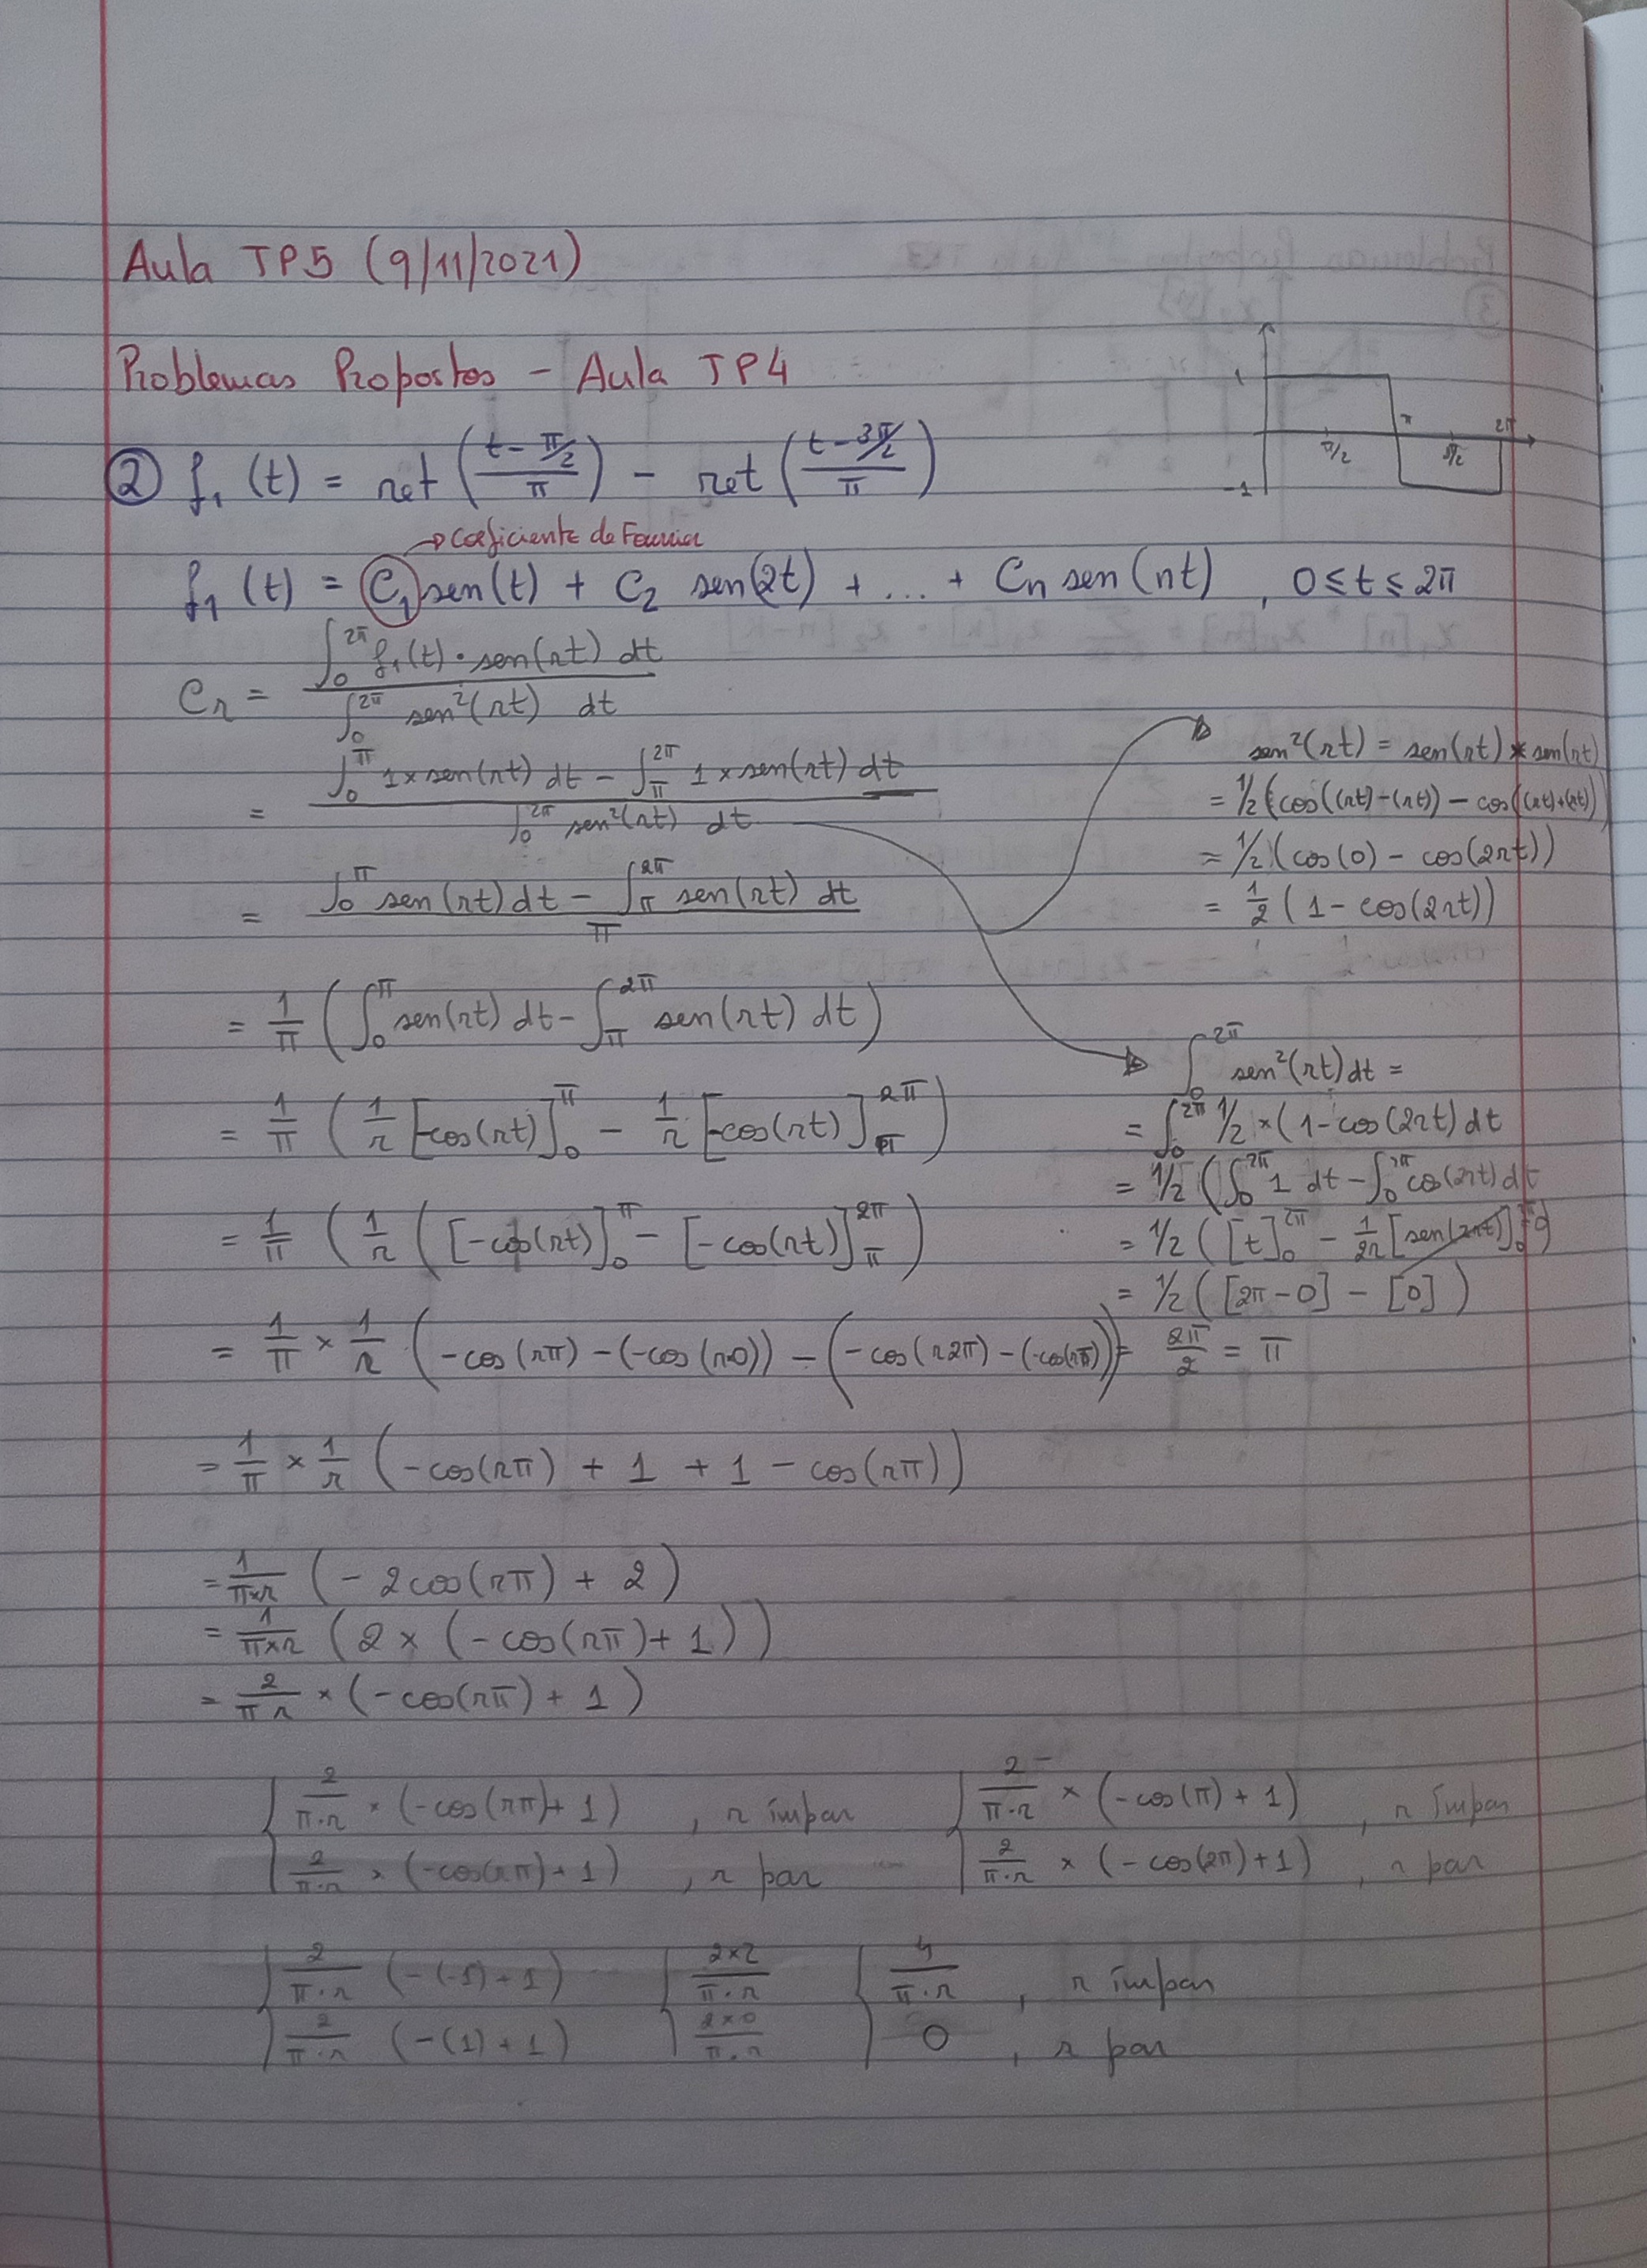 Aula TP5 (9/11/2021)
Problemas Propostos - Aula TP4
1
π
2π
π/2
3π/2
-1
② f₁(t) = ret((t-π/2)/π) - ret((t-3π/2)/π)
→ Coeficiente de Fourier
f₁(t) = C₁ sen(t) + C₂ sen(2t) + ... + Cn sen(nt) , 0≤t≤2π
Cr = ∫₀^2π f₁(t)·sen(rt) dt / ∫₀^2π sen²(rt) dt
= (∫₀^π 1×sen(rt) dt - ∫π^2π 1×sen(rt) dt) / ∫₀^2π sen²(rt) dt
= (∫₀^π sen(rt) dt - ∫π^2π sen(rt) dt) / π
= 1/π (∫₀^π sen(rt) dt - ∫π^2π sen(rt) dt)
= 1/π (1/r [-cos(rt)]₀^π - 1/r [-cos(rt)]π^2π)
= 1/π (1/r ([-cos(rt)]₀^π - [-cos(rt)]π^2π)
= 1/π × 1/r (-cos(rπ) - (-cos(r0)) - (-cos(r2π) - (-cos(rπ)))
= 1/π × 1/r (-cos(rπ) + 1 + 1 - cos(rπ))
= 1/(π×r) (-2cos(rπ) + 2)
= 1/(π×r) (2 × (-cos(rπ) + 1))
= 2/(π r) × (-cos(rπ) + 1)
sen²(rt) = sen(rt) * sen(rt)
= 1/2 (cos((rt)-(rt)) - cos((rt)+(rt))
= 1/2 (cos(0) - cos(2rt))
= 1/2 (1 - cos(2rt))
∫₀^2π sen²(rt) dt =
= ∫₀^2π 1/2 × (1-cos(2rt) dt
= 1/2 (∫₀^2π 1 dt - ∫₀^2π cos(2rt) dt
= 1/2 ([t]₀^2π - 1/2r [sen(2rt)]₀^2π)
= 1/2 ([2π-0] - [0])
= 2π/2 = π
{ 2/(π·r) × (-cos(rπ)+1) , r ímpar { 2/(π·r) × (-cos(π)+1) , r ímpar
{ 2/(π·r) × (-cos(rπ)+1) , r par { 2/(π·r) × (-cos(2π)+1) , r par
{ 2/(π·r) (-(-1)+1) { 2×2/(π·r) { 4/(π·r) , r ímpar
{ 2/(π·r) (-(1)+1) { 2×0/(π·r) { 0 , r par